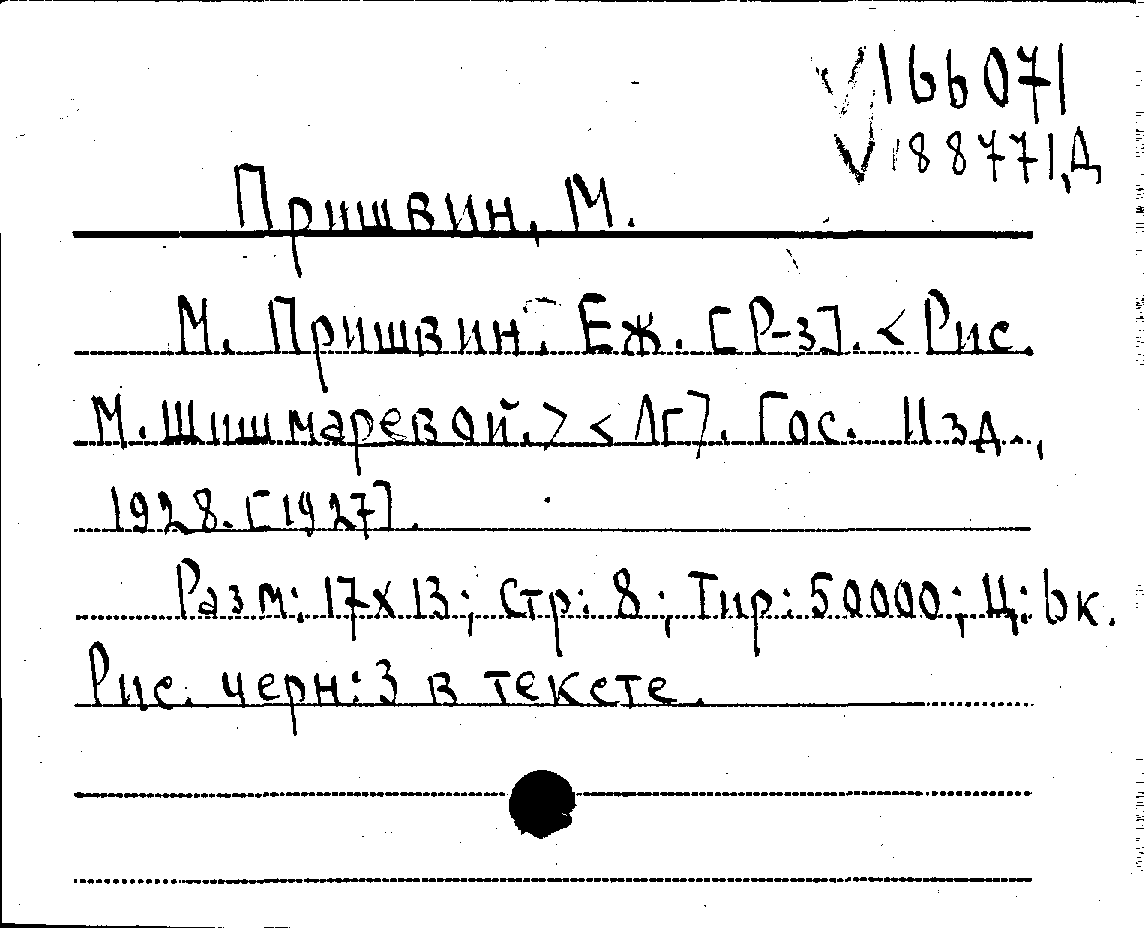 166071
188771,Д
Пришвин, М.
М. Пришвин. Еж. [Р-з]. <Рис.
М. Шишмаревой.> <Лг>. Гос. Изд.,
1928. [1927].
Разм: 17x13; Стр: 8; Тир: 50000; Ц: 6к.
Рис. черн: 3 в тексте.